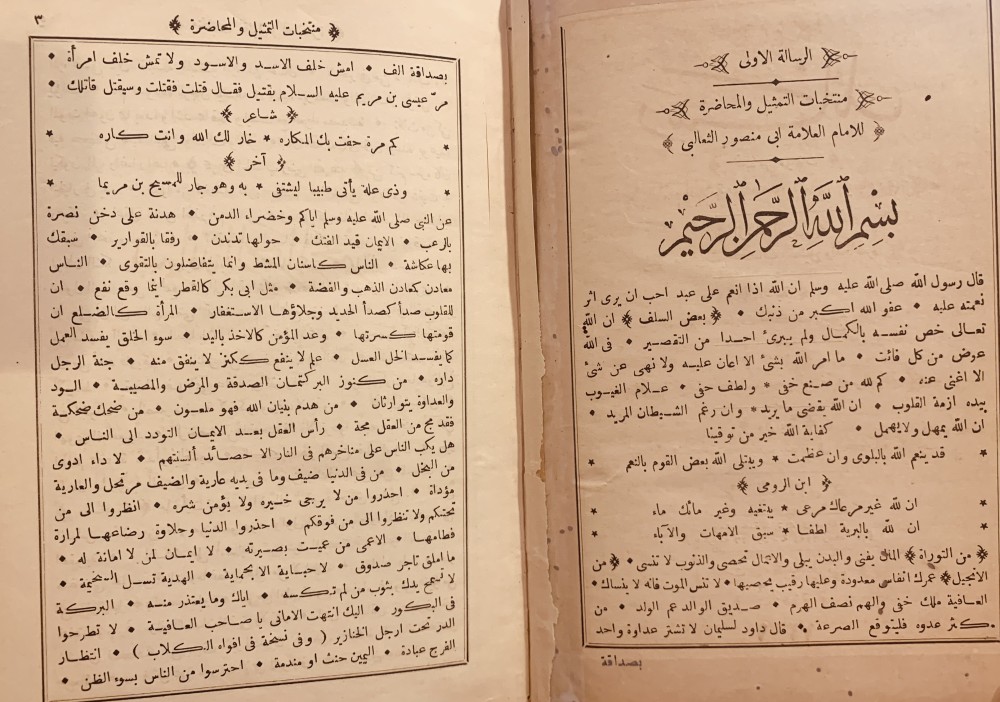 الرسالة الاولى
منتخبات التمثيل والمحاضرة
للامام العلامة ابى منصور الثعالبى
بسم الله الرحمن الرحيم
قال رسول الله صلى الله عليه وسلم ان الله اذا انعم على عبد احب ان يرى اثر
نعمته عليه • عفو الله اكبر من ذنبك • ﴿ بعض السلف ﴾ ان الله
تعالى خص نفسه بالكمال ولم يبرئ احدا من التقصير • فى الله
عوض من كل فائت • ما امر الله بشئ الا اعان عليه ولا نهى عن شئ
الا اغنى عنه • كم لله من صنع خفى * ولطف حفى • علام الغيوب
بيده ازمة القلوب • ان الله يقضى ما يريد * وان رغم الشيطان المريد •
ان الله يمهل ولا يهمل • كفاية الله خير من توقينا
* قد ينعم الله بالبلوى وان عظمت * ويبتلى الله بعض القوم بالنعم *
﴿ ابن الرومى ﴾
* ان لله غير مرعاك مرعى * يبتغيه وغير مائك ماء *
* ان لله بالبرية لطفا * سبق الامهات والآباء *
﴿ من التوراة ﴾ المال يفنى والبدن يبلى والاعمال تحصى والذنوب لا تنسى • ﴿ من
الانجيل ﴾ عمرك انفاس معدودة وعليها رقيب يحصيها • لا تنس الموت فانه لا ينساك •
العافية ملك خفى والهم نصف الهرم • صديق الوالد عم الولد • من
كثر عدوه فليتوقع الصرعة • قال داود لسليمان لا تشتر عداوة واحد
بصداقة
﴿ منتخبات التمثيل والمحاضرة ﴾ ٣
بصداقة الف • امش خلف الاسد والاسود ولا تمش خلف امرأة •
مر عيسى بن مريم عليه السلام بقتيل فقال قتلت فقتلت وسيقتل قاتلك •
﴿ شاعر ﴾
* كم مرة حفت بك المكاره * خار لك الله وانت كاره *
﴿ آخر ﴾
* وذى علة يأتى طبيبا ليشتفى * به وهو جار للمسيح بن مريما *
عن النبى صلى الله عليه وسلم اياكم وخضراء الدمن • هدنة على دخن نصرة
بالرعب • الايمان قيد الفتك • حولها تدندن • رفقا بالقوارير • سبقك
بها عكاشة • الناس كاسنان المشط وانما يتفاضلون بالتقوى • الناس
معادن كمعادن الذهب والفضة • مثل ابى بكر كالقطر اينما وقع نفع • ان
للقلوب صدأ كصدأ الحديد وجلاؤها الاستغفار • المرأة كالضلع ان
قومتها كسرتها • وعد المؤمن كالاخذ باليد • سوء الخلق يفسد العمل
كما يفسد الخل العسل • علم لا ينفع ككنز لا ينفق منه • جنة الرجل
داره • من كنوز البر كتمان الصدقة والمرض والمصيبة • الود
والعداوة يتوارثان • من هدم بنيان الله فهو ملعون • من ضحك ضحكة
فقد مج من العقل مجة • رأس العقل بعد الايمان التودد الى الناس •
هل يكب الناس على مناخرهم فى النار الا حصائد ألسنتهم • لا داء ادوى
من البخل • من فى الدنيا ضيف وما فى يديه عارية والضيف مرتحل والعارية
مؤداة • احذروا من لا يرجى خيره ولا يؤمن شره • انظروا الى من
تحتكم ولا تنظروا الى من فوقكم • احذروا الدنيا وحلاوة رضاعها لمرارة
فطامها • الاعمى من عميت بصيرته • لا ايمان لمن لا امانة له •
ما املق تاجر صدوق • لا جباية الا بحماية • الهدية تسل السخيمة •
لا تمسح يدك بثوب من لم تكسه • اياك وما يعتذر منه • البركة
فى البكور • اليك انتهت الامانى يا صاحب العافية • لا تطرحوا
الدر تحت ارجل الخنازير ( وفى نسخة فى افواه الكلاب ) • انتظار
الفرج عبادة • اليمين حنث او مندمة • احترسوا من الناس بسوء الظن •